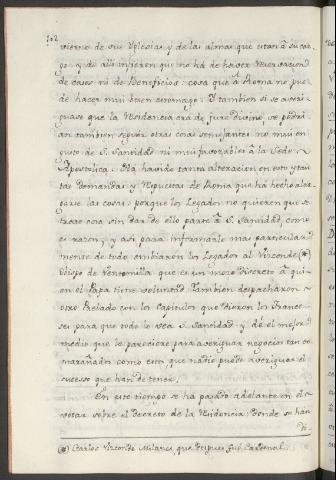 102
vierno de sus Yglesias, y de las almas que estan à su car-
go: y de alli infieren que no há de haver reservacion
de casos ni de Beneficios: cosa que à Roma no pue-
de hacer mui buen estomago. Y tambien si se averi-
guase que la residencia era de jure Divino, se podri-
an tambien seguir otras cosas semejantes no mui en
gusto de S. Santidad ni mui favorables à la Sede
Apostolica. Ha havido tanta alteracion en esto y tan-
tas Demandas y Respuestas de Roma que há hecho alar-
garse las cosas: porque los Legados no quieren que se
trate cosa sin dar de ello parte à S. Santidad, como
es razon; y asi para informarle mas particular-
mente de todo embiaron los Legados al Vizconde (*)
Obispo de Ventemilia que es un mozo discreto à qui-
en el Papa tiene voluntad. Tambien despacharon
otro Prelado con los Capitulos que dieron los France-
ses para que todo lo vea S. Santidad y dé el mejor
medio que le pareciere para averiguar negocios tan en-
marañados como estos, que nadie puede averiguar el
sucesso que han de tener.
En este tiempo se há pasado adelante en el
votar sobre el Decreto de la Residencia; donde se han
(*) Carlos Vizconde Milanes, que despues fué Cardenal.